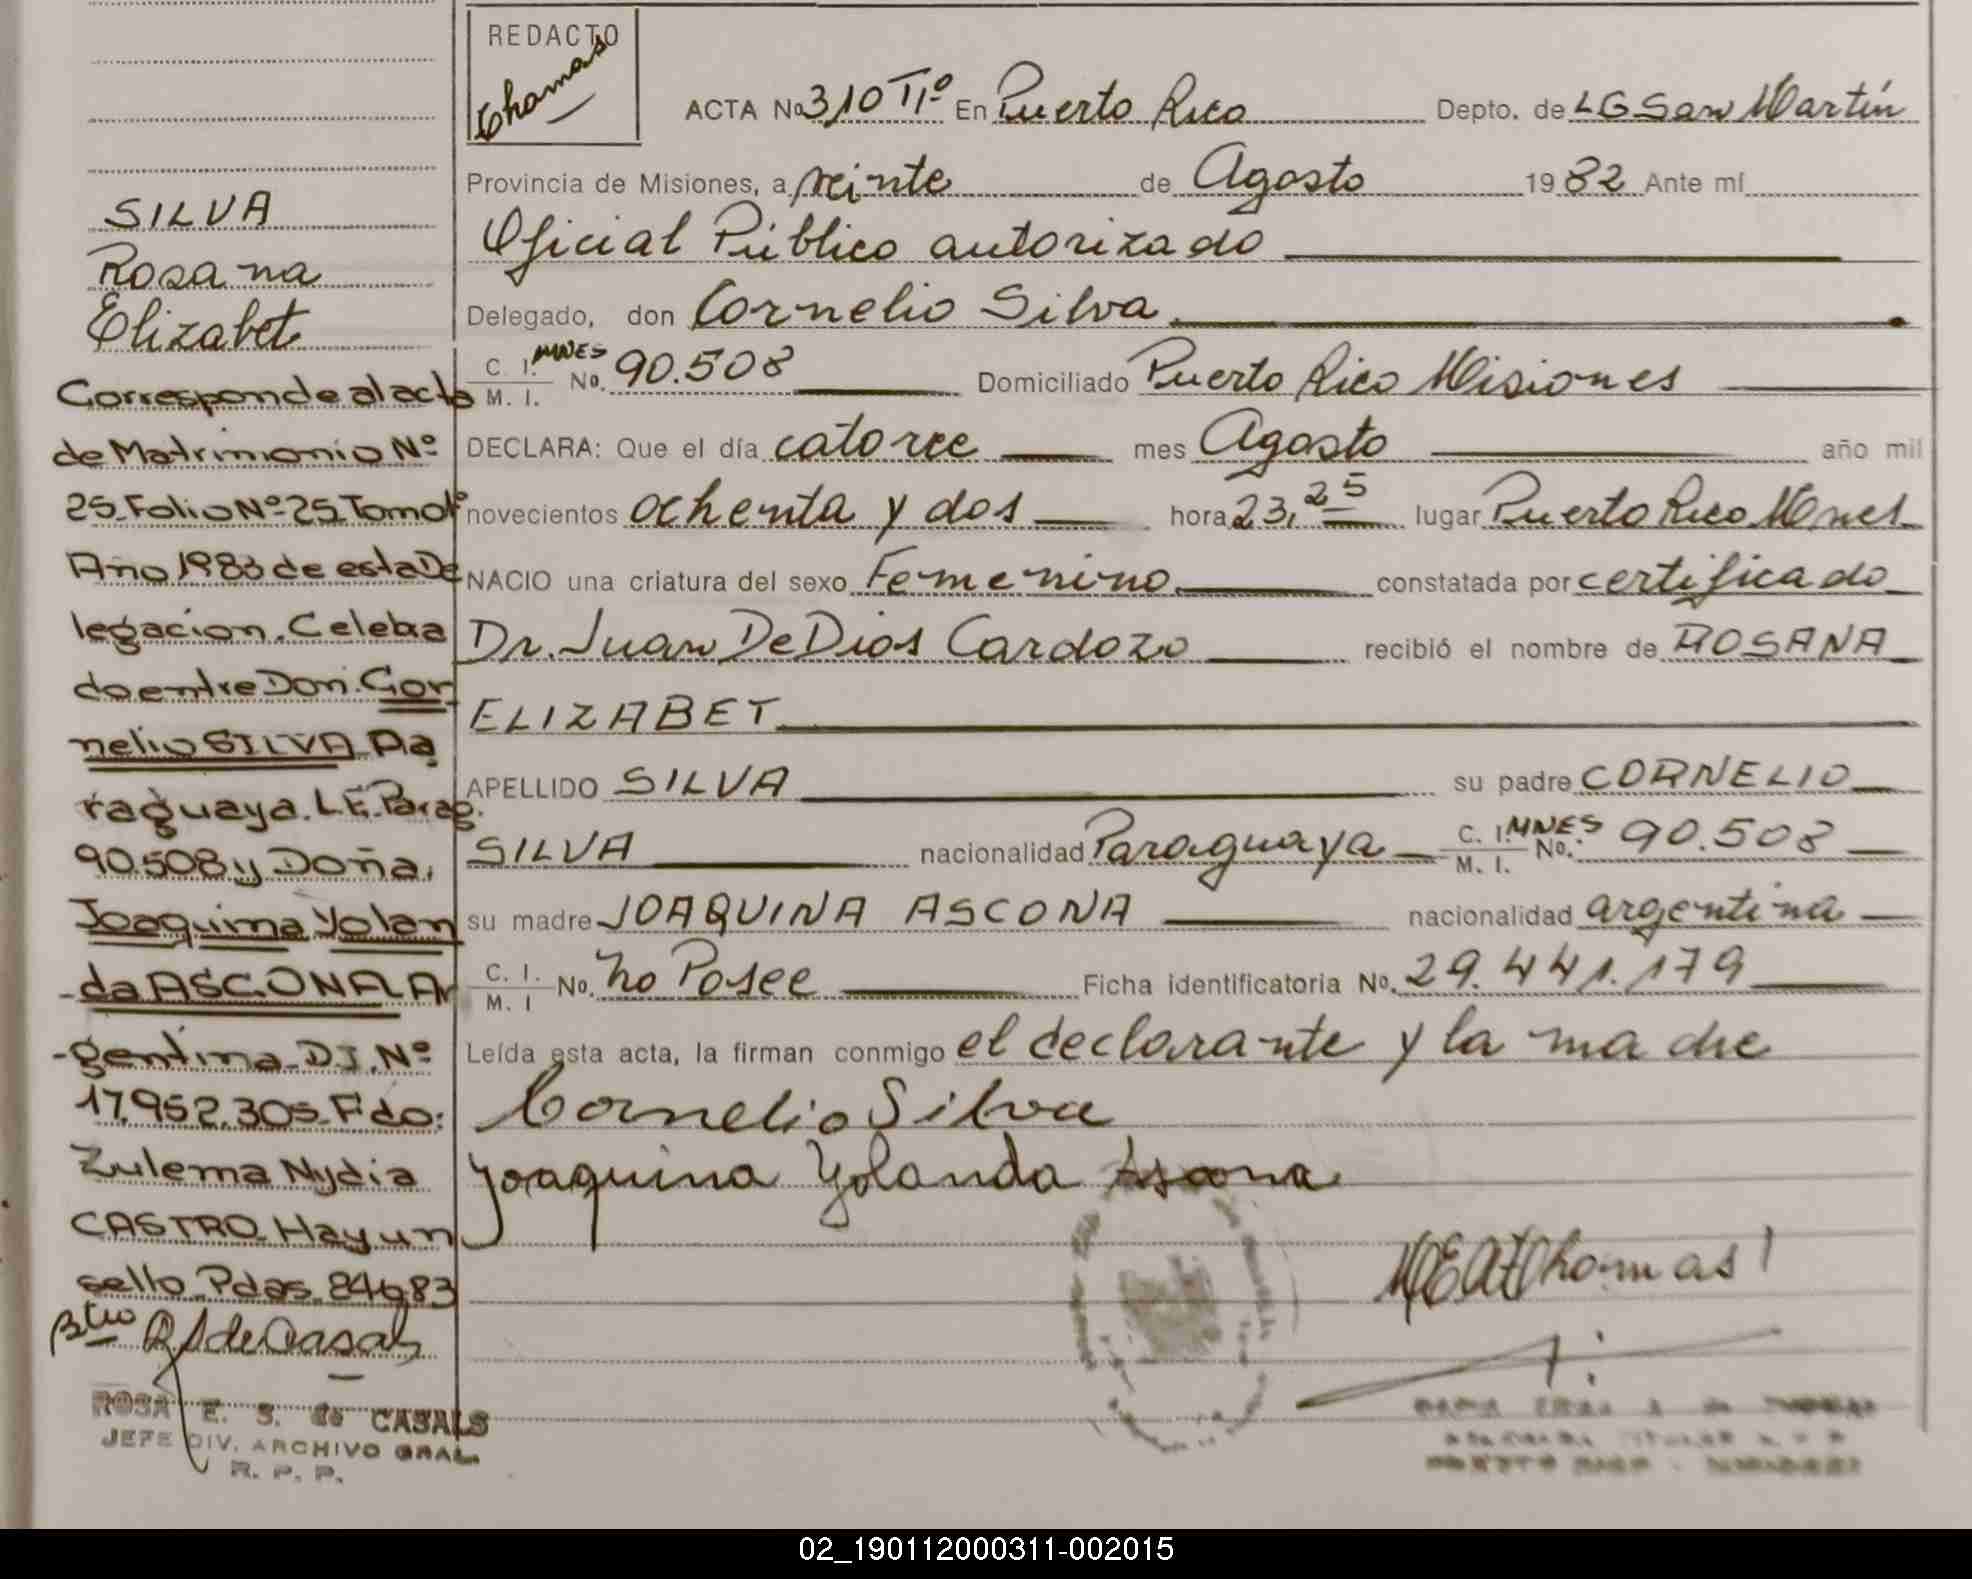 REDACTO
Thomas
ACTA No 310 TIº En Puerto Rico Depto. de LG San Martín
Provincia de Misiones, a veinte de Agosto 1982 Ante mí
Oficial Público autorizado
Delegado, don Cornelio Silva
C. I. M. I. MNES No. 90.508 Domiciliado Puerto Rico Misiones
DECLARA: Que el día catorce mes Agosto año mil
novecientos ochenta y dos hora 23,25 lugar Puerto Rico Mnes
NACIO una criatura del sexo Femenino constatada por certificado
Dr. Juan De Dios Cardozo recibió el nombre de ROSANA
ELIZABET
APELLIDO SILVA su padre CORNELIO
SILVA nacionalidad Paraguaya C. I. M. I. MNES No. 90.508
su madre JOAQUINA ASCONA nacionalidad argentina
C. I. M. I No. no Posee Ficha identificatoria No. 29.441.179
Leída esta acta, la firman conmigo el declarante y la madre
Cornelio Silva
Joaquina Yolanda Ascona
Thomas
SILVA
Rosana
Elizabet
Corresponde al acta
de Matrimonio Nº
25 Folio Nº 25 Tomo Iº
Año 1983 de esta De
legacion. Celebra
do entre Don. Cor
nelio SILVA Pa
raguaya. L.E. Parag.
90.508 y Doña,
Joaquina Yolan
da ASCONA Ar
gentina D.I. Nº
17.952.305 Fdo:
Zulema Nydia
CASTRO Hay un
sello Pdas. 24683
R S de Casals
ROSA E. S. de CASALS
JEFE DIV. ARCHIVO GRAL.
R. P. P.
02_190112000311-002015